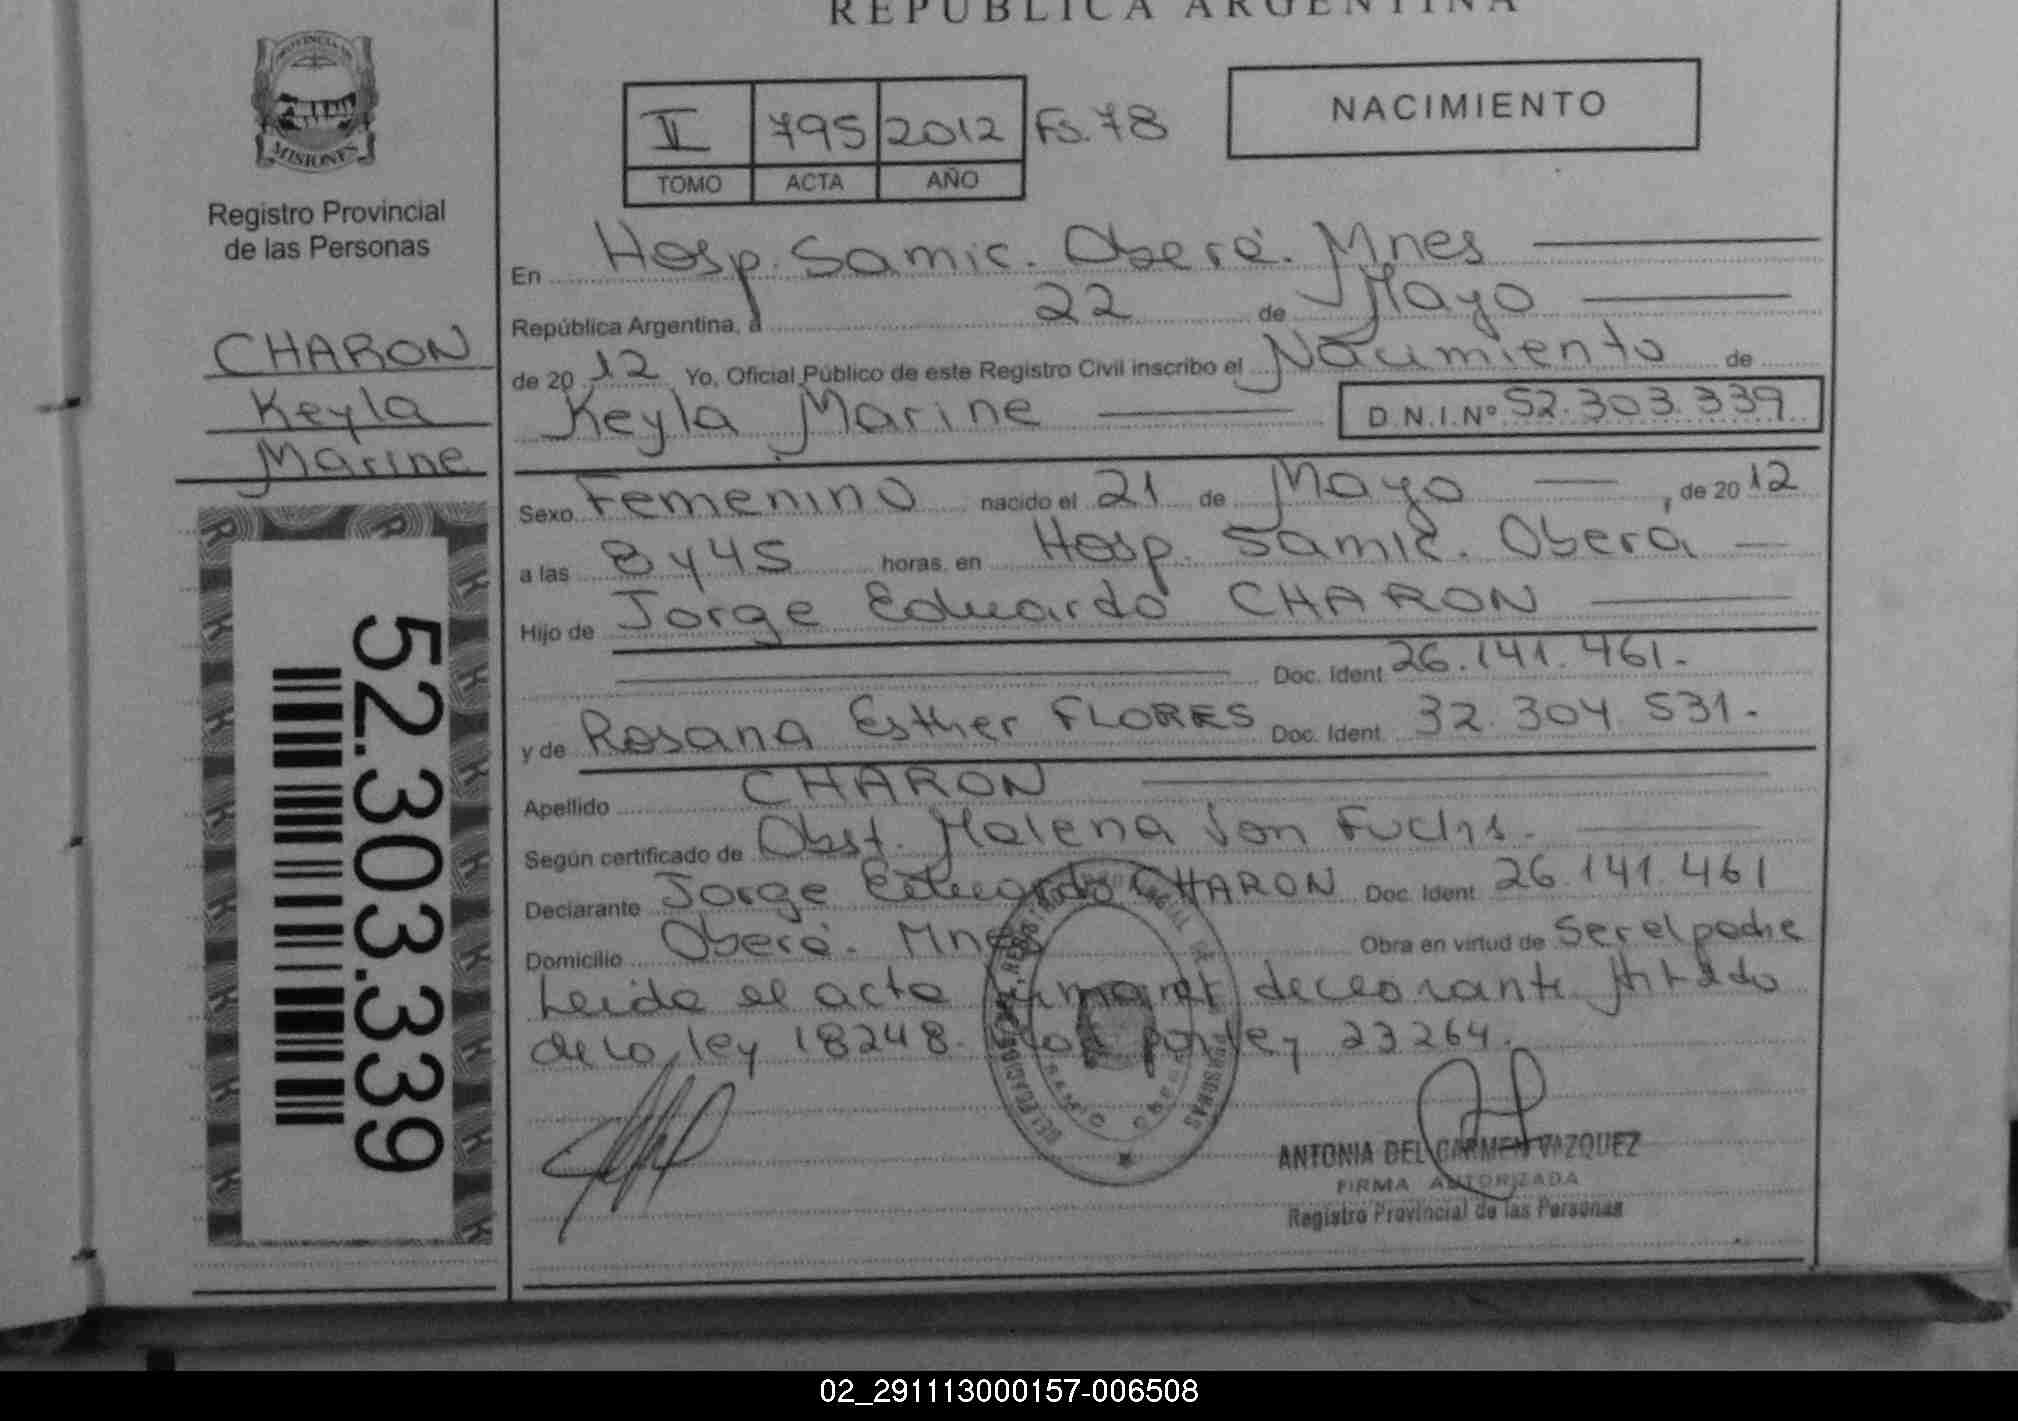 REPUBLICA ARGENTINA
PROVINCIA DE
MISIONES
Registro Provincial
de las Personas
II 795 2012 Fs. 78
TOMO ACTA AÑO
NACIMIENTO
CHARON
Keyla
Marine
52.303.339
En Hosp. Samic. Oberá. Mnes
República Argentina, a 22 de Mayo
de 2012 Yo, Oficial Público de este Registro Civil inscribo el Nacimiento de
Keyla Marine D.N.I.Nº 52.303.339
Sexo Femenino nacido el 21 de Mayo, de 2012
a las 8 y 45 horas. en Hosp. Samic. Oberá
Hijo de Jorge Eduardo CHARON
Doc. Ident. 26.141.461.
y de Rosana Esther FLORES Doc. Ident. 32.304.531.
Apellido CHARON
Según certificado de Obst. Malena Von Fuchs.
Declarante Jorge Eduardo CHARON Doc. Ident. 26.141.461
Domicilio Oberá. Mnes Obra en virtud de ser el padre
Leida el acta declarante
de la ley 18248. por ley 23264.
ANTONIA DEL CARMEN VAZQUEZ
FIRMA AUTORIZADA
Registro Provincial de las Personas
02_291113000157-006508